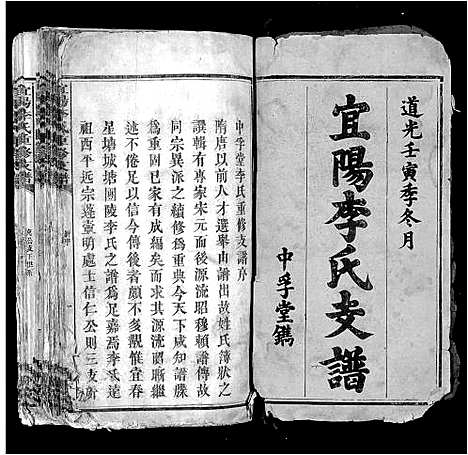 道光壬寅季冬月
宜陽李氏支譜
中孚堂鐫
中孚堂李氏重修支譜序
隋唐以前人才選舉由譜出故姓氏簿狀之
譔輯有專家宋元而後源流昭穆賴譜傳故
同宗異派之續修為重典今天下咸知譜牒
為重固已家成編矣而求其源流昭晰繼
承不忒足以信今傳後者顧不多覯惟宜春
星塘城塘關陵李氏之譜為足嘉焉李氏遠
祖西平近宗蓬壹明處士信仁公則三支所
宜陽李氏重修支譜